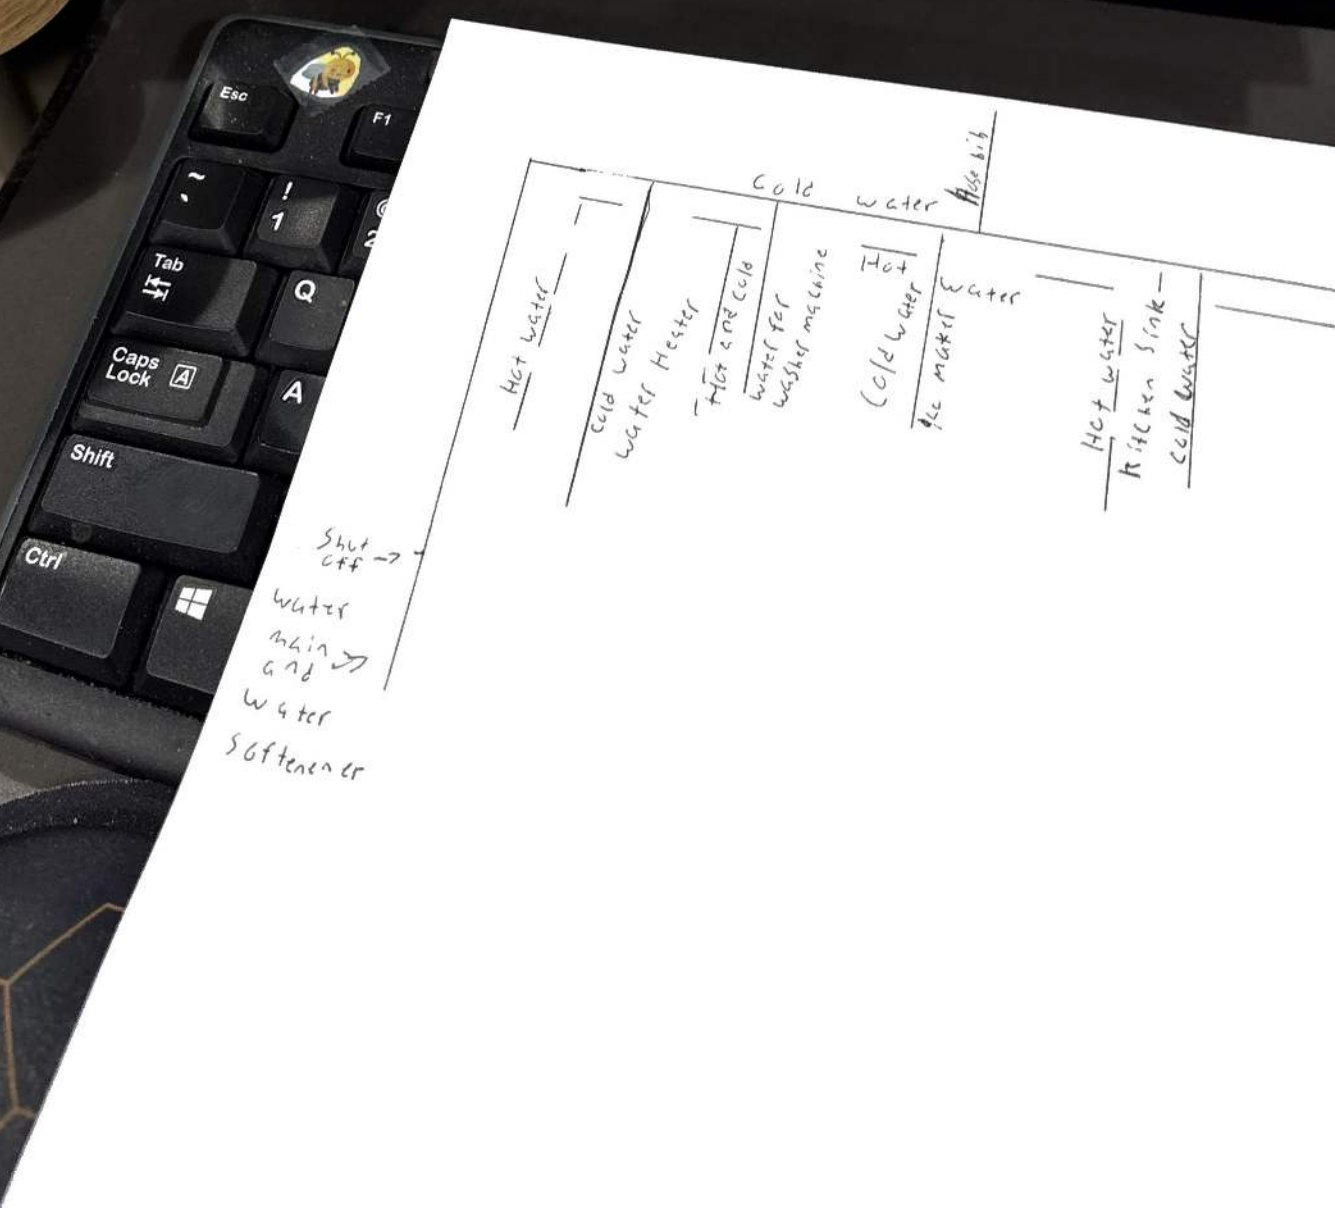 Esc
F1
~
`
!
1
2
Tab
Q
Caps
Lock
A
A
Shift
Ctrl
Hose bib
Cold water
Hot water
Cold water
Water Heater
Hot and cold
water for
washer machine
Hot water
Cold water
Ice maker
Hot water
Kitchen Sink
Cold water
Shut
off →
water
main →
and
water
Softener